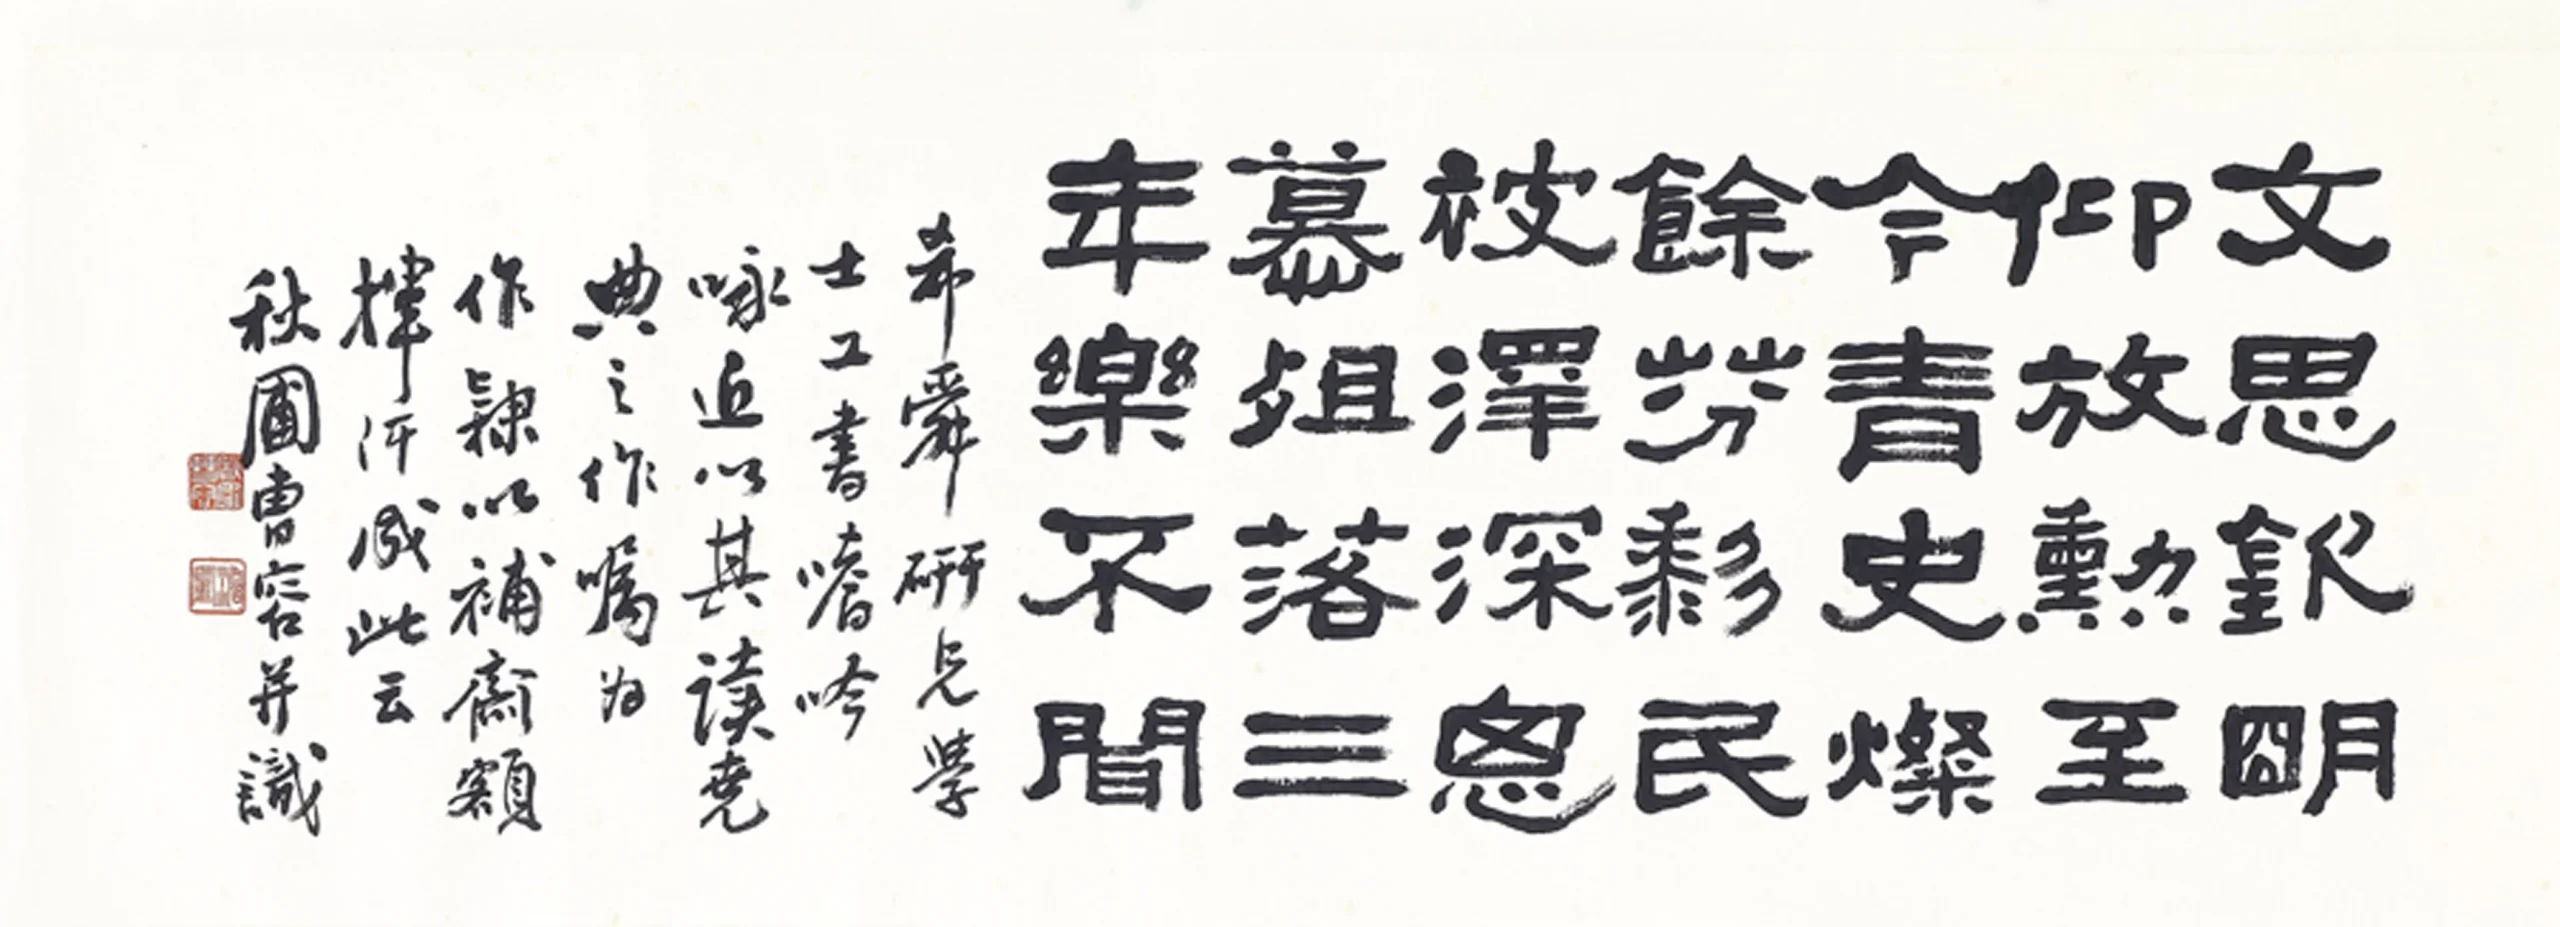 文思欽明
仰放勲至
今青史燦
餘芬剩民
被澤深恩
慕殂落三
年樂不聞
希舜研兄學
士工書嗜吟
咏近以其讀堯
典之作囑為
作隸以補齋額
揮汗成此云
秋圃曹容并識